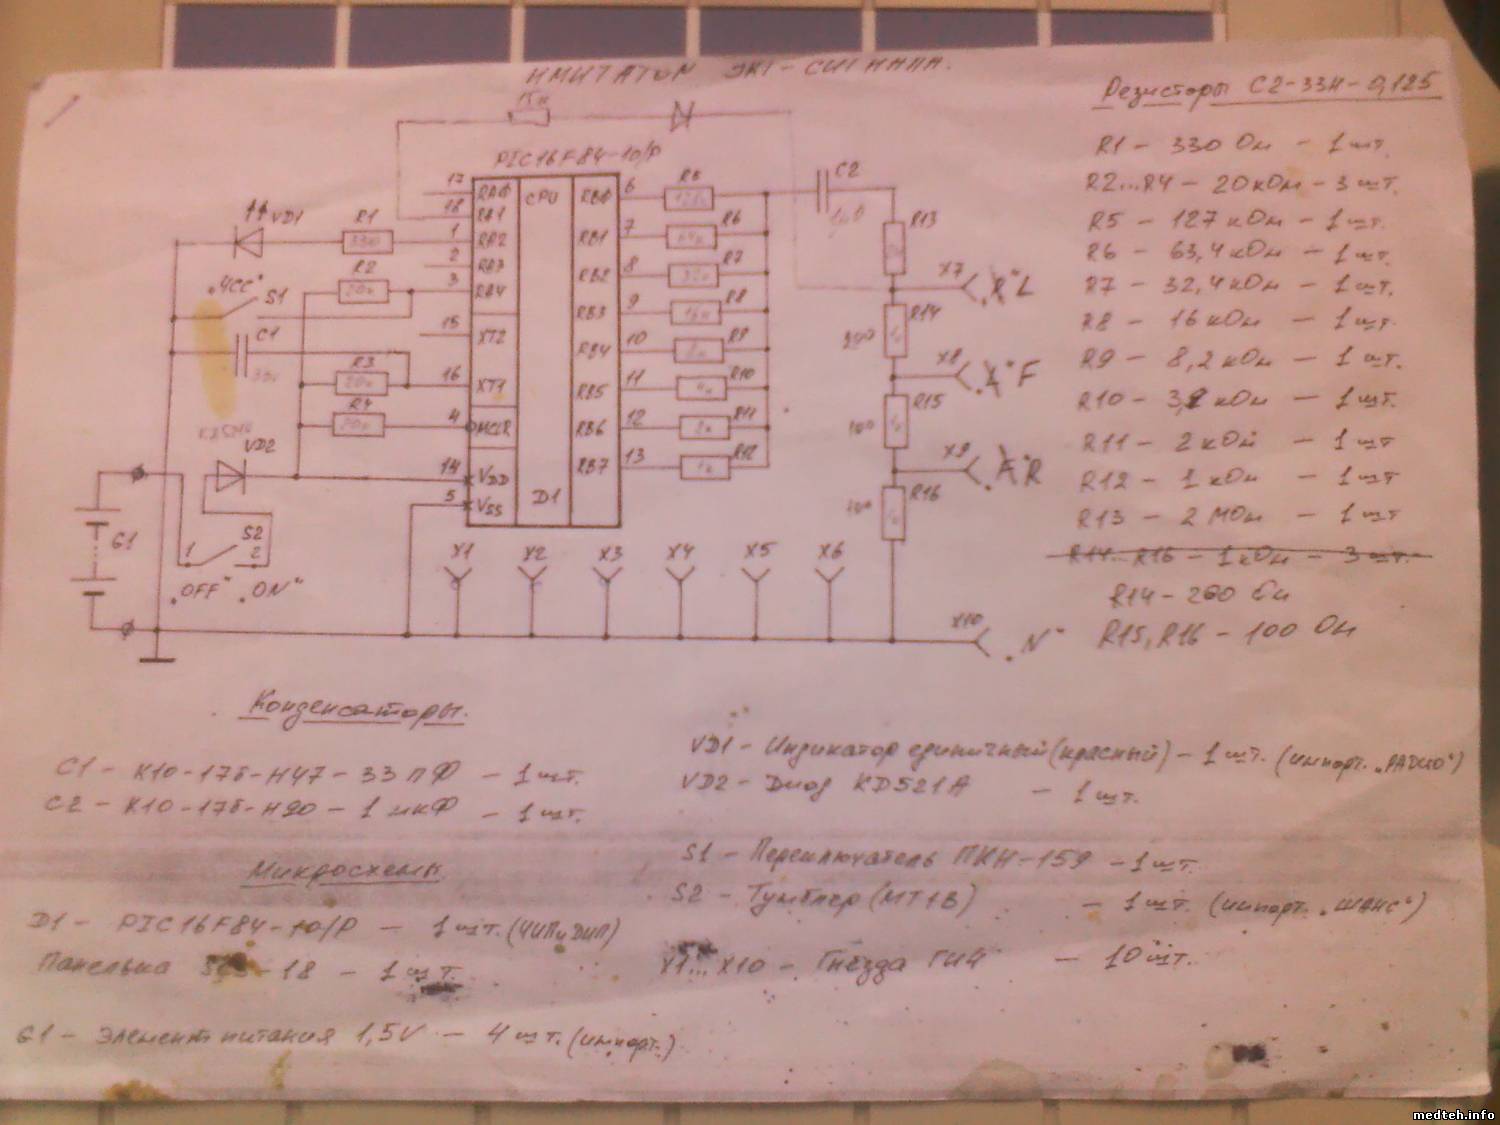 ИМИТАТОР ЭКГ-СИГНАЛА.
15к
PIC16F84-10/P
CPU
D1
17 RA0
18 RA1
1 RA2
2 RA3
3 RA4
15 XT2
16 XT1
4 MCLR
14 VDD
5 VSS
RB0 6
RB1 7
RB2 8
RB3 9
RB4 10
RB5 11
RB6 12
RB7 13
VD1
R1
330
R2
20к
"ЧСС" S1
C1
33п
R3
20к
R4
20к
VD2
G1
S2
1 2
"OFF" "ON"
R6
R7
R8
16к
R9
R10
4к
R11
2к
R12
1к
C2
R13
X7 L
R14
200
X8 F
R15
100
X9 R
R16
100
X1 X2 X3 X4 X5 X6
X10 "N"
Резисторы С2-33Н-0,125
R1 - 330 Ом - 1 шт.
R2...R4 - 20 кОм - 3 шт.
R5 - 127 кОм - 1 шт.
R6 - 63,4 кОм - 1 шт.
R7 - 32,4 кОм - 1 шт.
R8 - 16 кОм - 1 шт.
R9 - 8,2 кОм - 1 шт.
R10 - кОм - 1 шт.
R11 - 2 кОм - 1 шт
R12 - 1 кОм - 1 шт
R13 - 2 МОм - 1 шт
R14...R16 - 1 кОм - 3 шт.
R14 - 200 Ом
R15, R16 - 100 Ом
Конденсаторы.
C1 - К10-17б-Н47 - 33 пФ - 1 шт.
C2 - К10-17б-Н90 - 1 мкФ - 1 шт.
Микросхемы
D1 - PIC16F84-10/P - 1 шт. (ЧИПиДИП)
Панелька SCS-18 - 1 шт.
G1 - Элемент питания 1,5V - 4 шт. (импорт.)
VD1 - Индикатор единичный (красный) - 1 шт. (импорт. "РАДИО")
VD2 - Диод КD521А - 1 шт.
S1 - Переключатель ПКН-159 - 1 шт.
S2 - Тумблер (МТ1В) - 1 шт. (импорт. "ШАНС")
X1...X10 - Гнёзда ГИ4 - 10 шт.
medteh.info